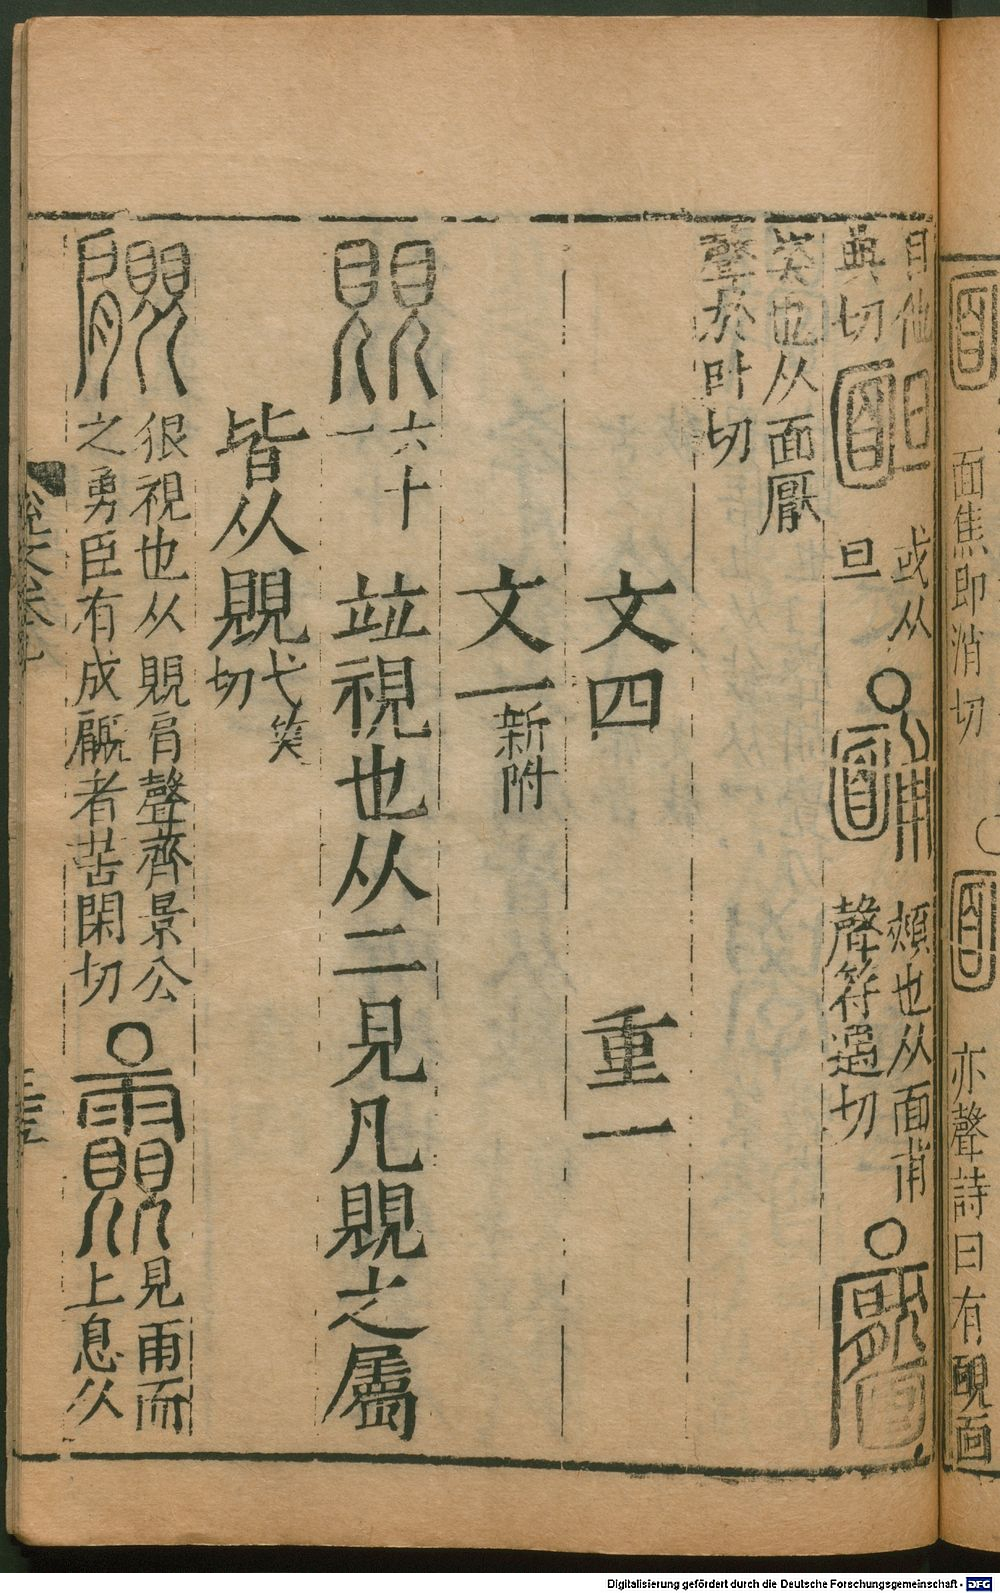 面焦即消切
〇
亦聲詩曰有靦面
目他
典切
或从
旦
〇
頰也从面甫
聲符遇切
〇
姿也从面厭
聲於叶切
文四 重一
文一新附
覞 六十一 竝視也从二見凡覞之屬
皆从覞弋笑切
䙾 很視也从覞肩聲齊景公
之勇臣有成者苦閑切
〇
見雨而
上息从
說文卷九